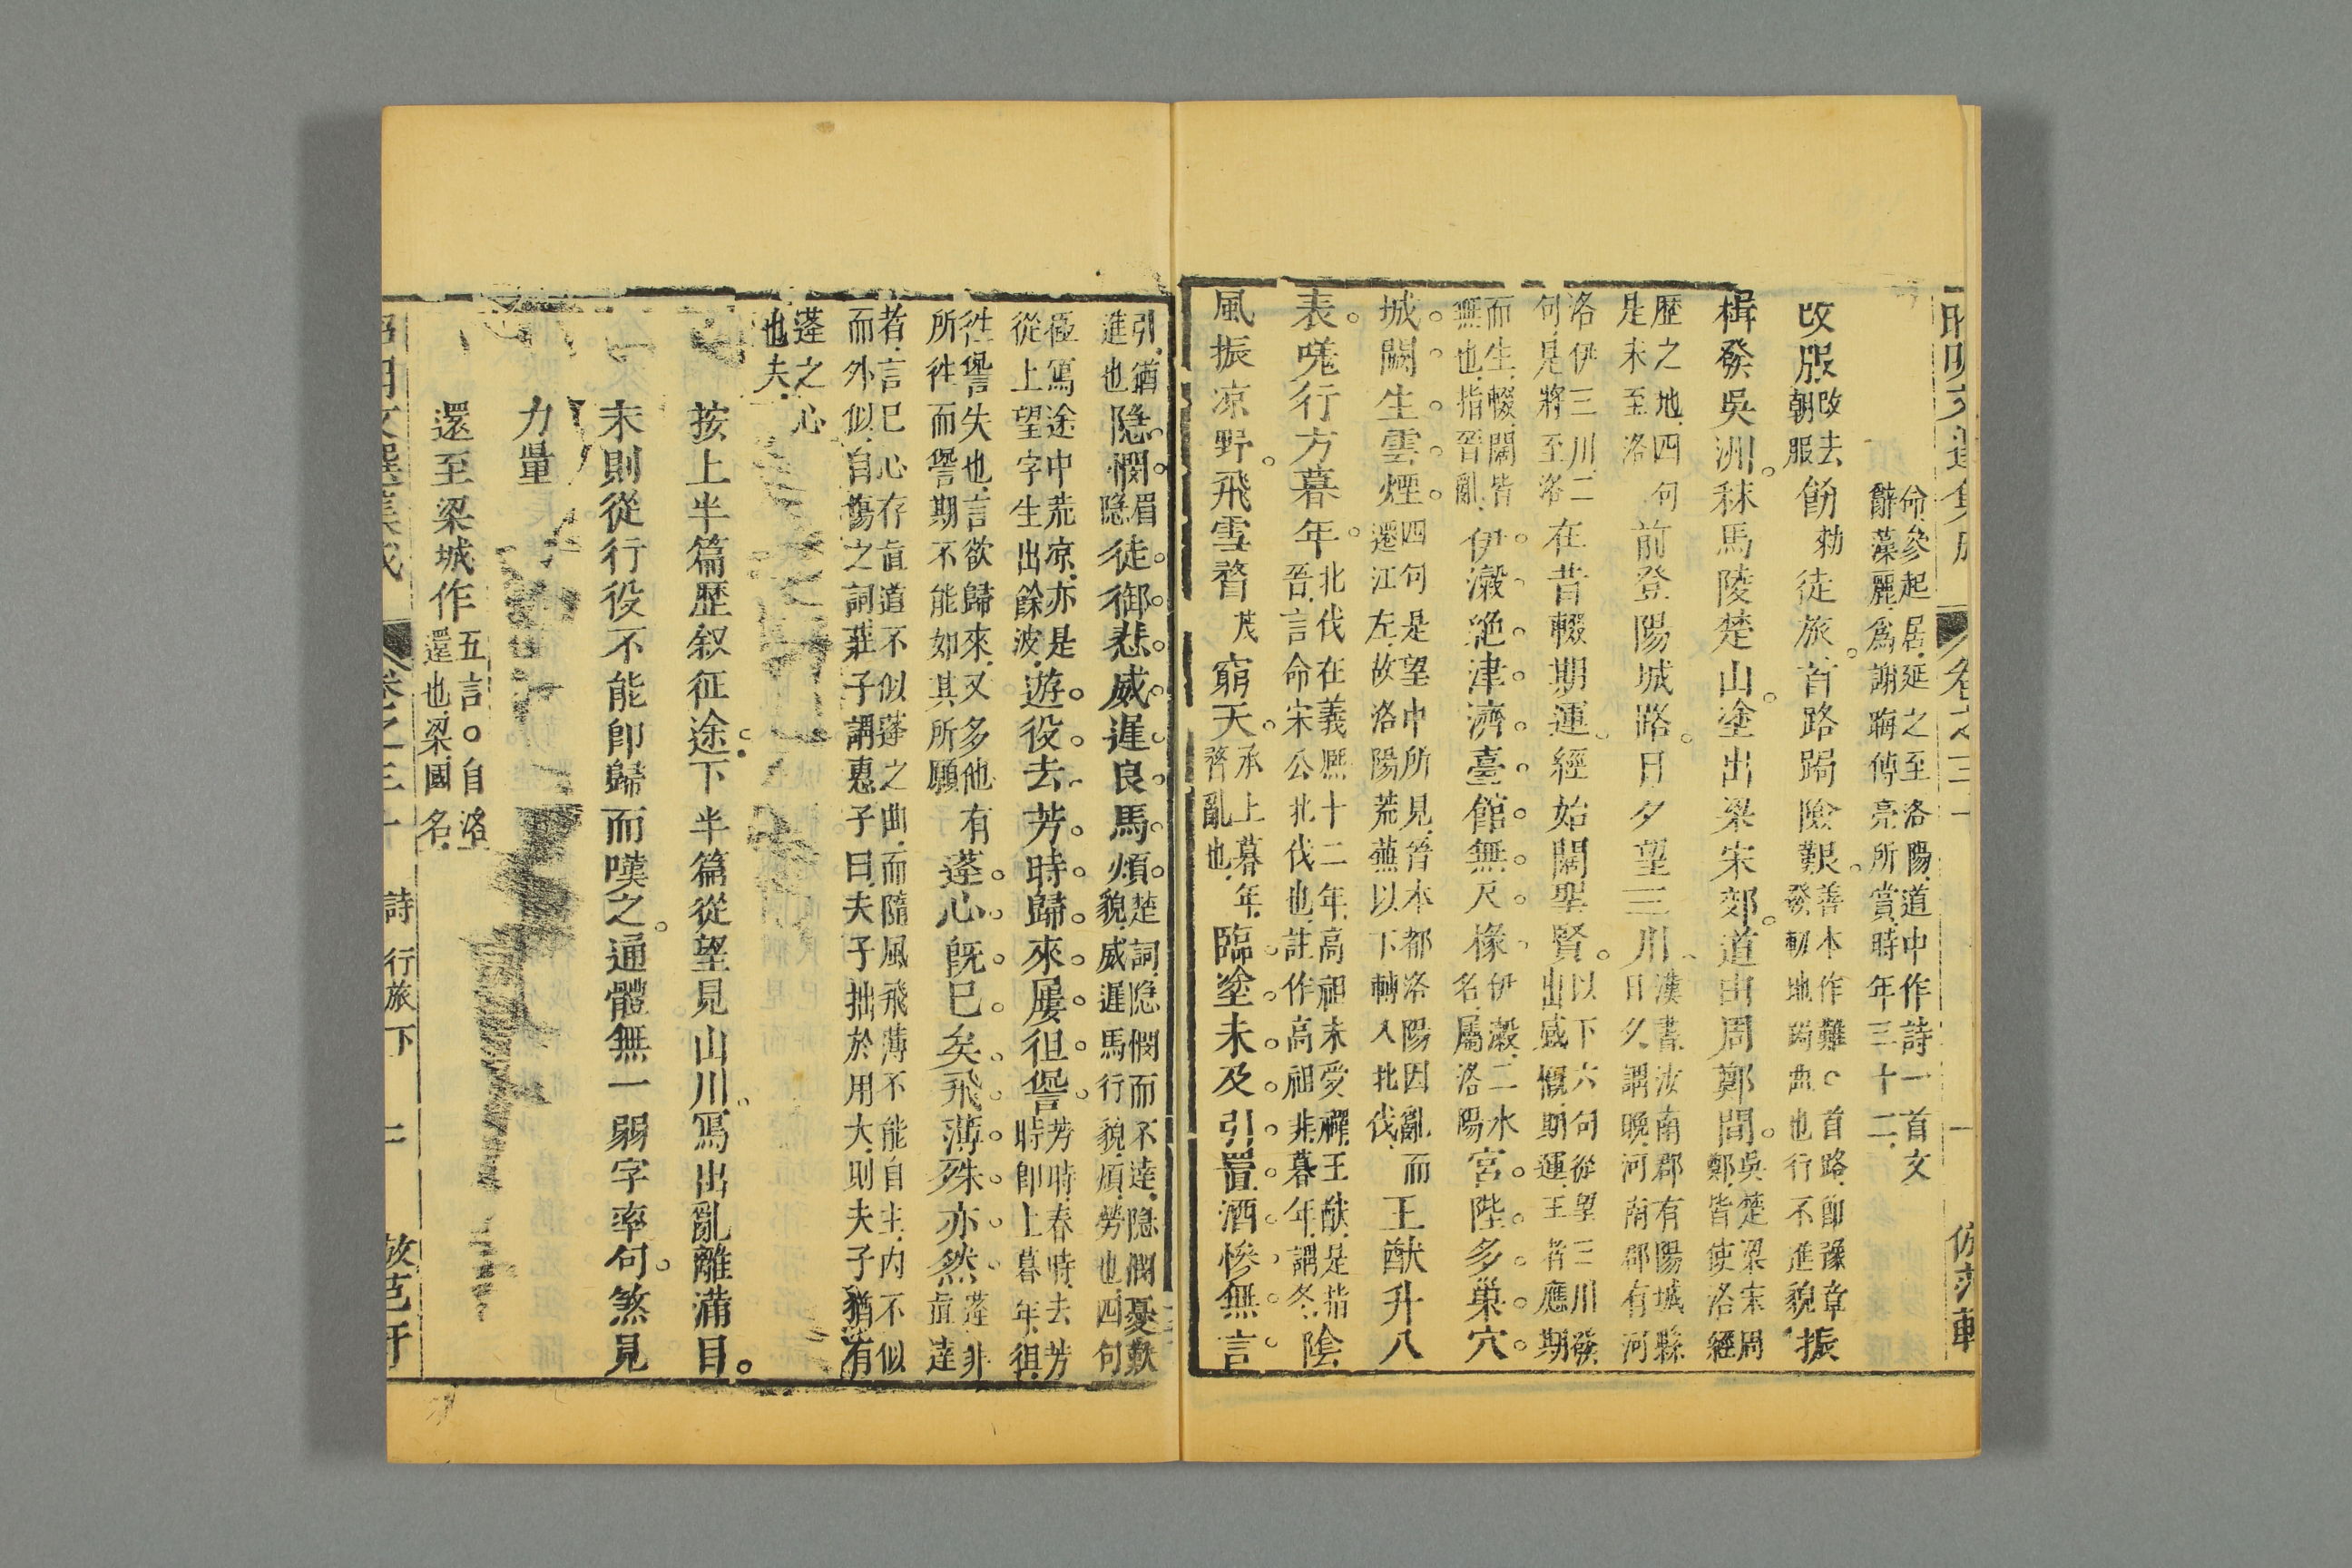 命參起居延之至洛陽道中作詩一首文
辭藻麗爲謝晦傅亮所賞時年三十二
改服改去朝服飭勅徒旅首路跼險艱善本作難○首路卽豫章發軔地跼曲也行不進貌振
楫發吳洲秣馬陵楚山塗出梁宋郊道由周鄭間吳楚梁宋周鄭皆使洛經
歷之地四句是未至洛前登陽城路日夕望三川漢書汝南郡有陽城縣日夕謂晚河南郡有河
洛伊三川二句是將至洛在昔輟期運經始闊聖賢以下六句從望三川發出感慨期運王者應期
而生輟闊皆無也指晉亂伊瀔絶津濟臺館無尺椽伊穀二水名屬洛陽宮陛多巢穴
城闕生雲煙四句是望中所見晉本都洛陽因亂而遷江左故洛陽荒蕪以下轉入北伐王猷升八
表嗟行方暮年北伐在義熙十二年高祖未受禪王猷是指吾言命宋公北伐也註作高祖非暮年謂冬陰
風振凉野飛雪瞀茂窮天承上暮年瞀亂也臨塗未及引置酒慘無言
引猶進也隱憫眉隱徒御悲威遲良馬煩楚詞隱憫而不達隱憫憂歎貌威遲馬行貌煩勞也四句
極寫途中荒凉亦是從上望字生出餘波遊役去芳時歸來屢徂諐芳時春時去芳時卽上暮年徂
徃諐失也言欲歸來又多他所徃而諐期不能如其所願有蓬心旣已矣飛薄殊亦然蓬非直達
者言已心存直道不似蓬之曲而隨風飛薄不能自主内不似而外似自傷之詞莊子謂惠子曰夫子拙於用大則夫子猶有
蓬之心也夫
按上半篇歷叙征途下半篇從望見山川寫出亂離滿目
末則從行役不能卽歸而嘆之通體無一弱字率句煞見
力量
還至梁城作五言○自洛還也梁國名
詩 行旅下 二